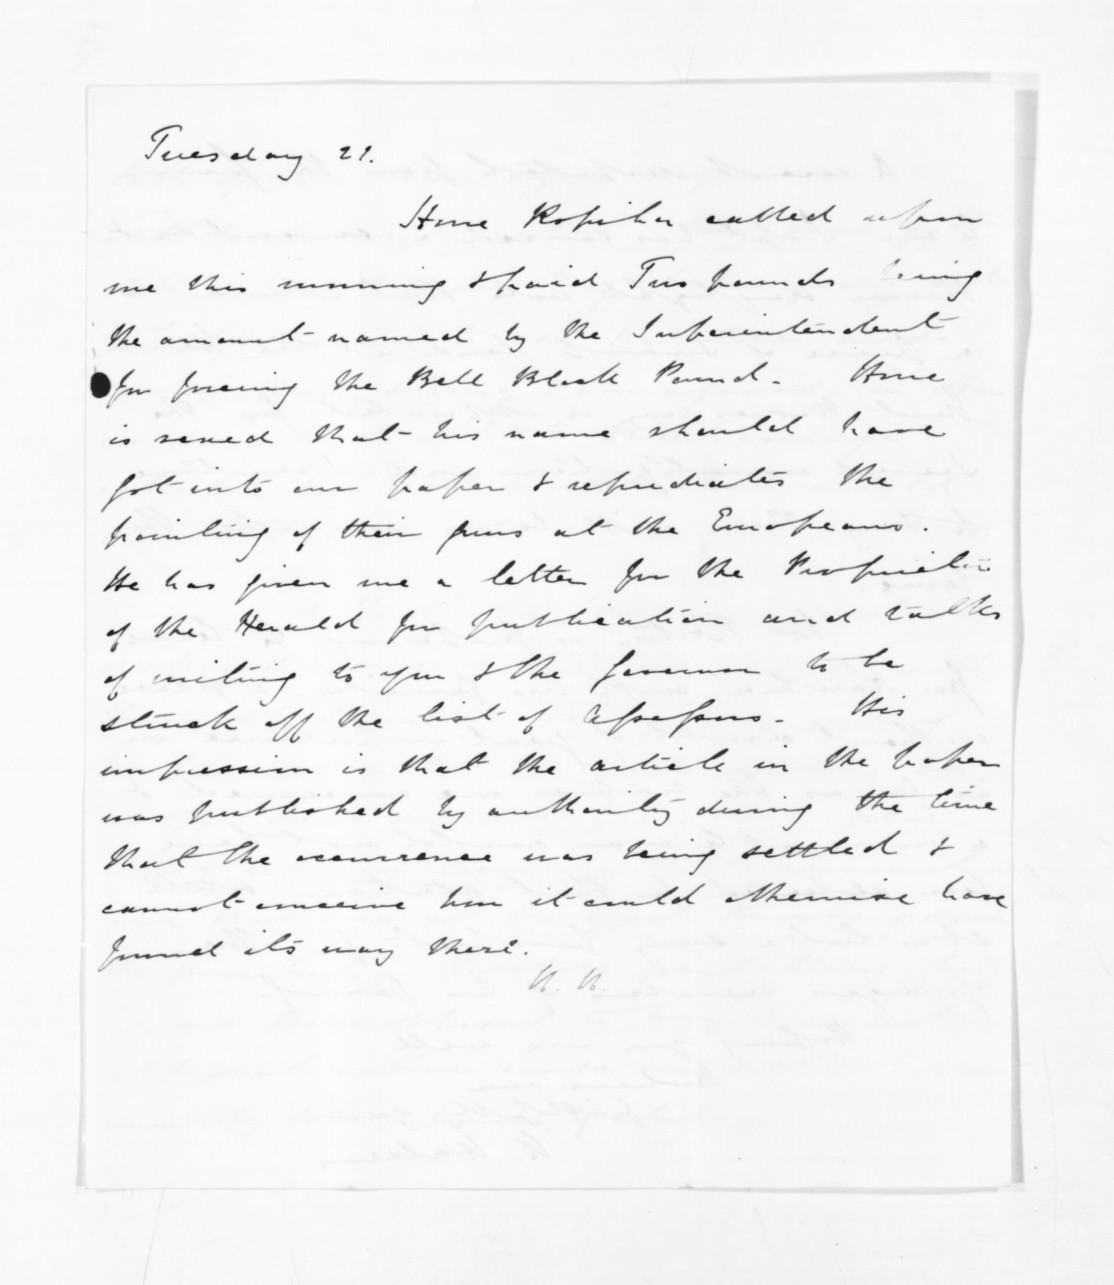 Tuesday 21.
Hone Ropiha called upon
me this morning & paid Two pounds being
the amount named by the Superintendent
for forcing the Bell Block Pound. Hone
is vexed that his name should have
got into our paper & repudiates the
pointing of their guns at the Europeans.
He has given me a letter for the Proprietor
of the Herald for publication and talks
of writing to you & the Governor to be
struck off the list of Assessors. His
impression is that the article in the paper
was published by authority during the time
that the occurrence was being settled &
cannot conceive how it could otherwise have
found its way there.